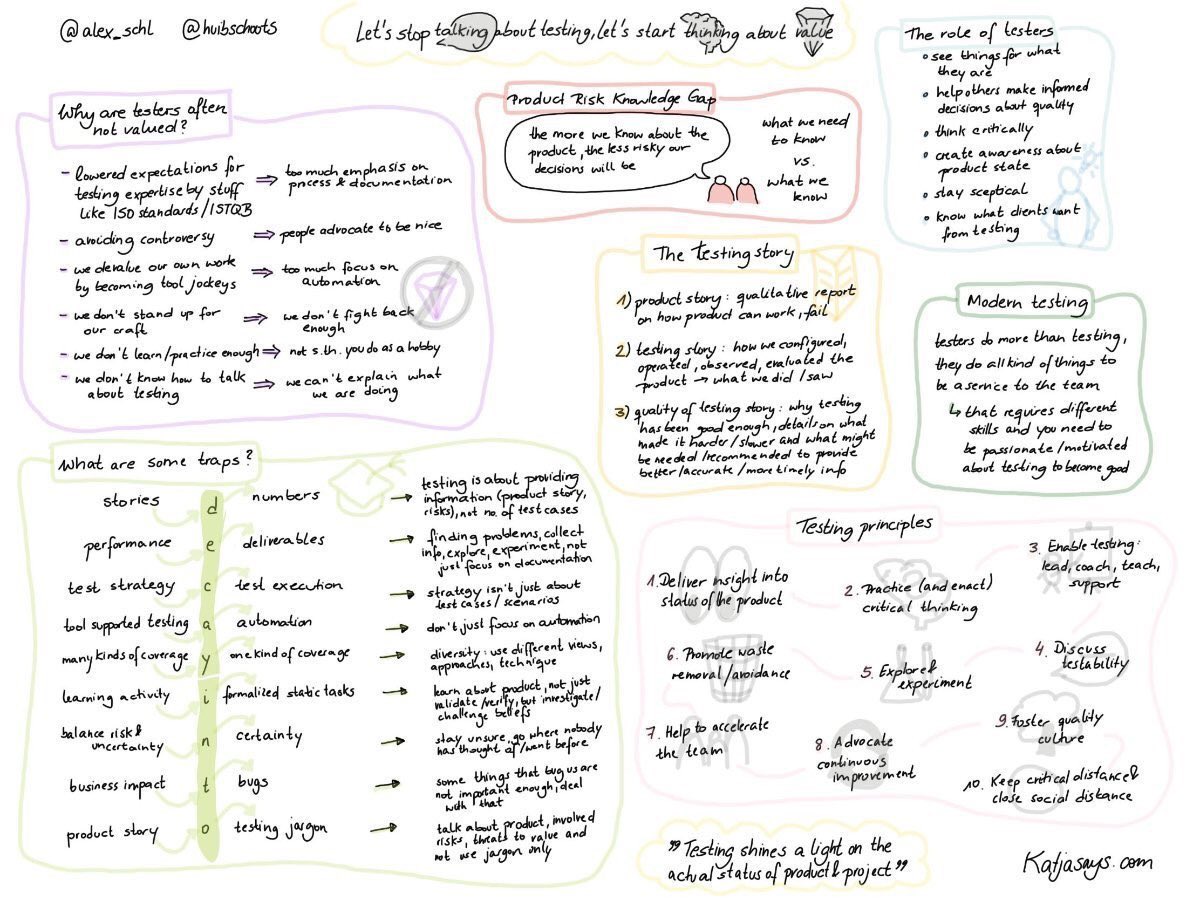 @alex_schl @huibschoots
Let's stop talking about testing, let's start thinking about value
Why are testers often
not valued?
- lowered expectations for
testing expertise by stuff
like ISO standards/ISTQB
⇒ too much emphasis on
process & documentation
- avoiding controversy ⇒ people advocate to be nice
- we devalue our own work
by becoming tool jockeys
⇒ too much focus on
automation
- we don't stand up for
our craft
⇒ we don't fight back
enough
- we don't learn/practice enough ⇒ not s.th. you do as a hobby
- we don't know how to talk
about testing
⇒ we can't explain what
we are doing
Product Risk Knowledge Gap
the more we know about the
product, the less risky our
decisions will be
what we need
to know
vs.
what we
know
The role of testers
• see things for what
they are
• help others make informed
decisions about quality
• think critically
• create awareness about
product state
• stay sceptical
• know what clients want
from testing
The testing story
1) product story: qualitative report
on how product can work, fail
2) testing story: how we configured,
operated, observed, evaluated the
product → what we did / saw
3) quality of testing story: why testing
has been good enough, details on what
made it harder/slower and what might
be needed/recommended to provide
better/accurate/more timely info
Modern testing
testers do more than testing,
they do all kind of things to
be a service to the team
↳ that requires different
skills and you need to
be passionate/motivated
about testing to become good
What are some traps?
stories d numbers →
testing is about providing
information (product story,
risks), not no. of test cases
performance e deliverables →
finding problems, collect
info, explore, experiment, not
just focus on documentation
test strategy c test execution →
strategy isn't just about
test cases/scenarios
tool supported testing a automation → don't just focus on automation
many kinds of coverage y one kind of coverage →
diversity: use different views,
approaches, technique
learning activity i formalized static tasks →
learn about product, not just
validate/verify, but investigate/
challenge beliefs
balance risk &
uncertainty
n certainty →
stay unsure, go where nobody
has thought of/went before
business impact t bugs →
some things that bug us are
not important enough, deal
with that
product story o testing jargon →
talk about product, involved
risks, threats to value and
not use jargon only
Testing principles
1. Deliver insight into
status of the product
2. Practice (and enact)
critical thinking
3. Enable testing:
lead, coach, teach,
support
4. Discuss
testability
5. Explore &
experiment
6. Promote waste
removal/avoidance
7. Help to accelerate
the team
8. Advocate
continuous
improvement
9. Foster quality
culture
10. Keep critical distance &
close social distance
"Testing shines a light on the
actual status of product & project"
Katjasays.com